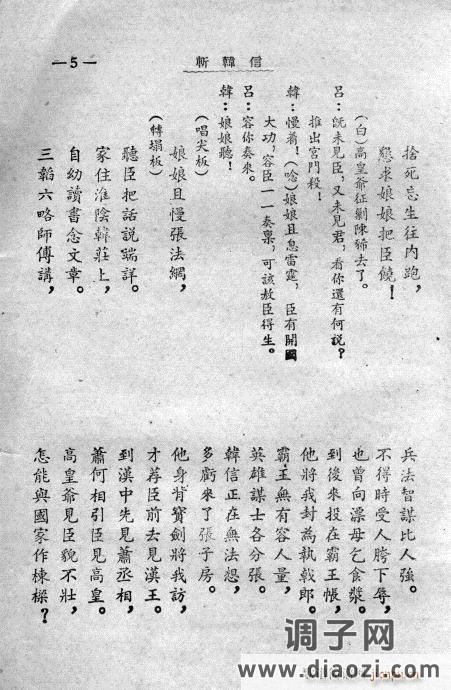 斬韓信
—5—
捨死忘生往內跑，
懇求娘娘把臣饒！
(白)高皇爺征剿陳豨去了。
呂：旣未見臣，又未見君，看你還有何說？
推出宮門殺！
韓：慢着！(唸)娘娘且息雷霆，臣有開國
大功，容臣一一奏稟，可該赦臣得生。
呂：容你奏來。
韓：娘娘聽！
(唱尖板)
娘娘且慢張法網，
(轉塌板)
聽臣把話説端詳。
家住淮陰韓莊上，
自幼讀書念文章。
三韜六略師傅講，
兵法智謀比人強。
不得時受人胯下辱，
也曾向漂母乞食漿。
到後來投在霸王帳，
他將我封為執戟郎。
霸王無有容人量，
英雄謀士各分張。
韓信正在無法想，
多虧來了張子房。
他身背寶劍將我訪，
才荐臣前去見漢王。
到漢中先見蕭丞相，
蕭何相引臣見高皇。
高皇爺見臣貌不壯，
怎能與國家作棟樑？
调子网
www.diaozi.com